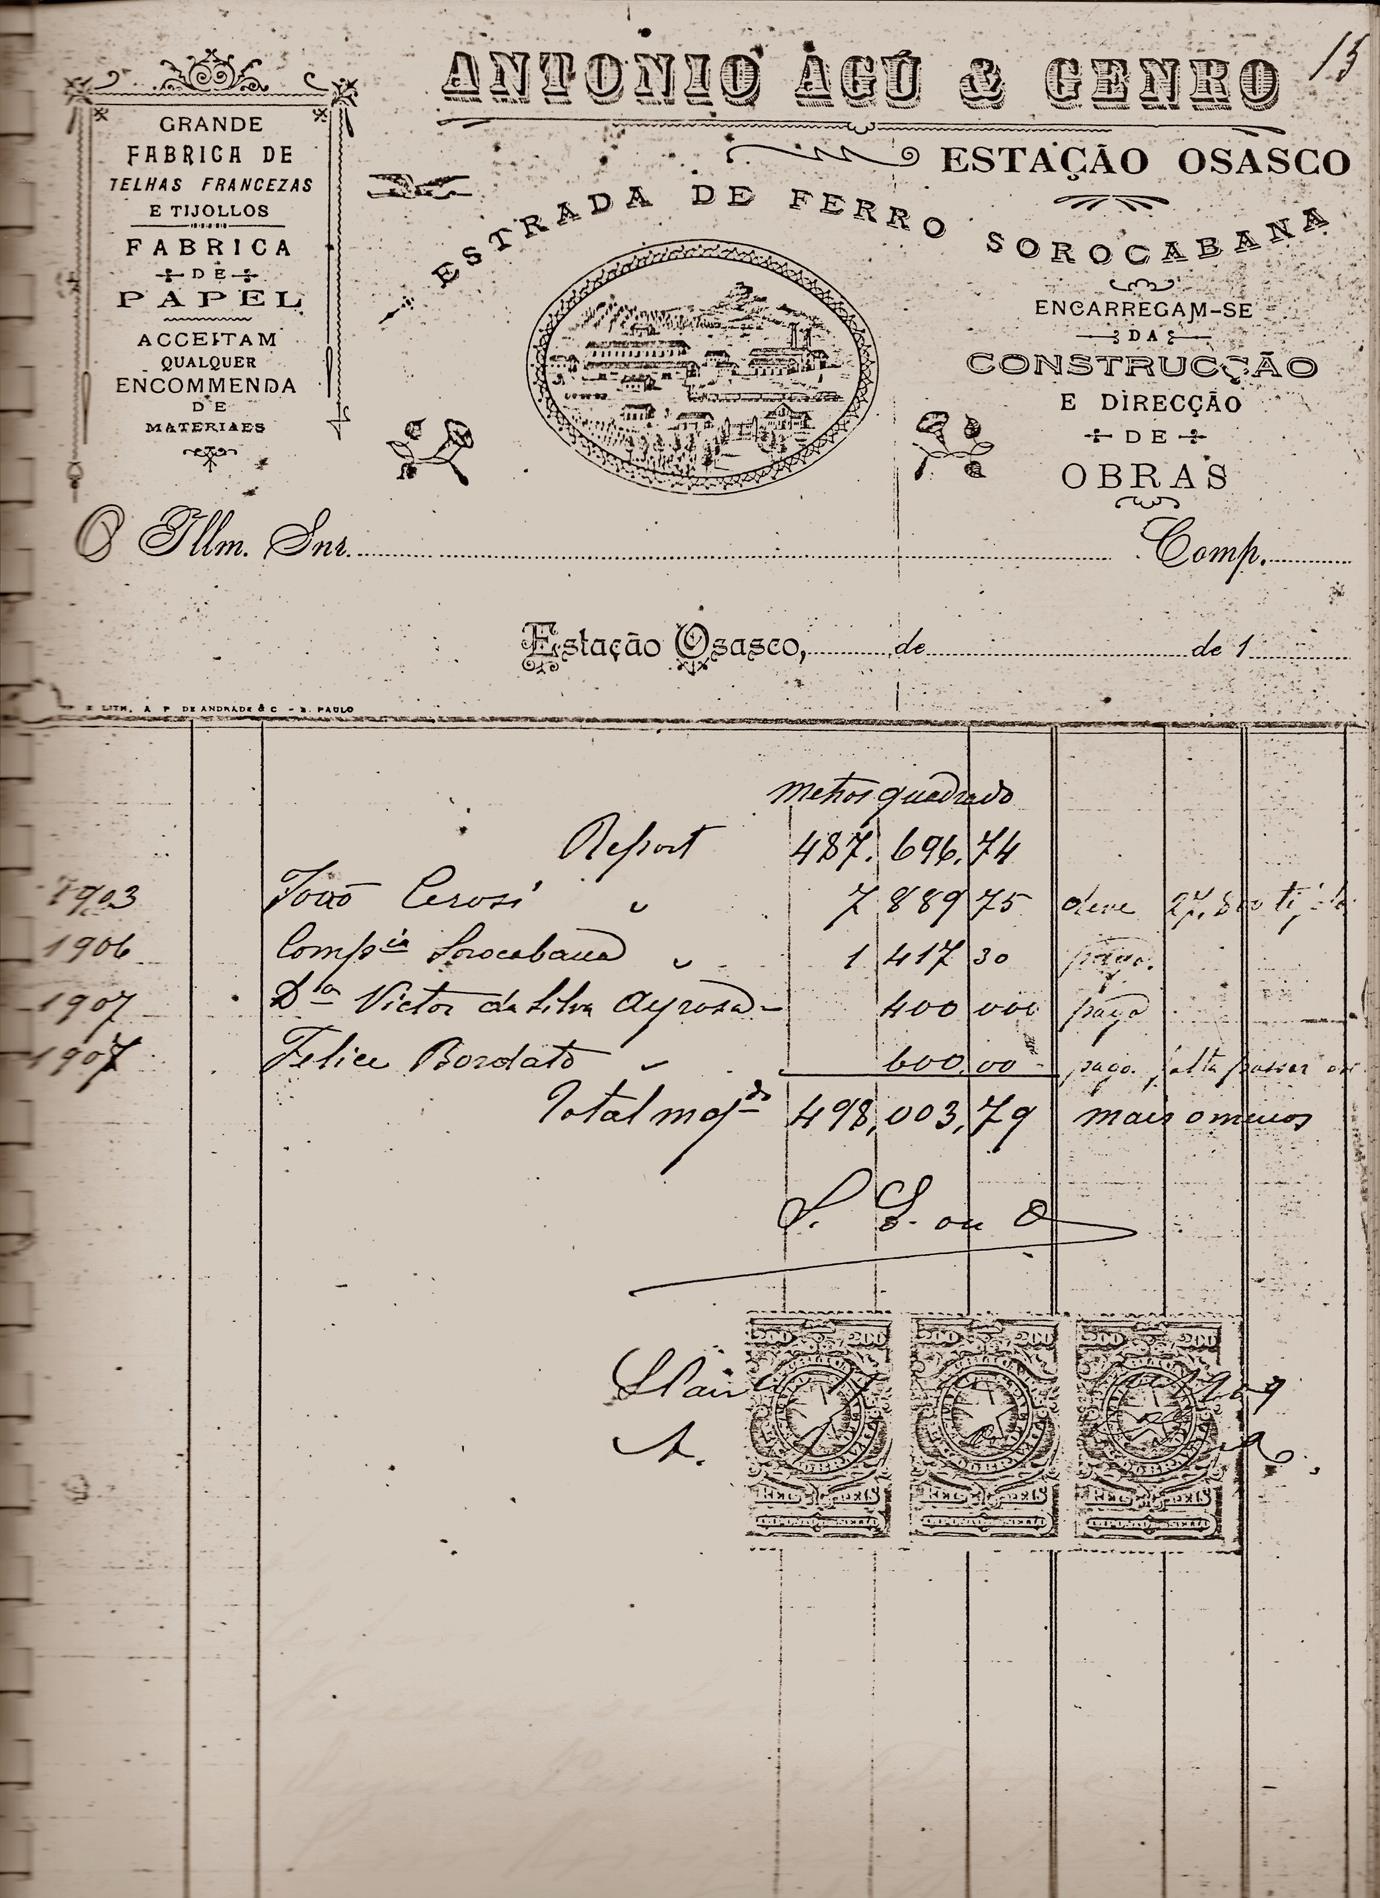 15
ANTONIO AGÚ & GENRO
GRANDE
FABRICA DE
TELHAS FRANCEZAS
E TIJOLLOS
FABRICA
DE
PAPEL
ACCEITAM
QUALQUER
ENCOMMENDA
DE
MATERIAES
ESTRADA DE FERRO SOROCABANA
ESTAÇÃO OSASCO
ENCARREGAM-SE
DA
CONSTRUCÇÃO
E DIRECÇÃO
DE
OBRAS
O Illm. Snr. Comp.
Estação Osasco, de de 1
LITH. A P DE ANDRADE & C - S. PAULO
metros quadrado
Report 487.696.74
1903 João Cerosi " 7 889 75 deve 27.800
1906 Compia Sorocabana " 1 417 30 pago.
1907 Victor da Silva Ayrosa - 400 000 pago
1907 Felice Bordato " 600.00 - pago falta passar
Total mqdo 498,003,79 mais o menos
S. E. ou O
200 200 200 200 200 200
S Paulo 1909
A.
REIS REIS REIS REIS REIS REIS
IMPOSTO DO SELLO IMPOSTO DO SELLO IMPOSTO DO SELLO